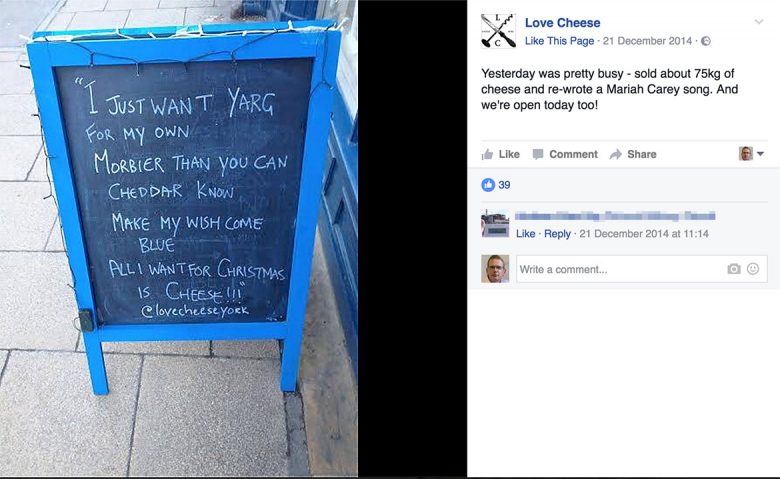 "I JUST WANT YARG
FOR MY OWN
MORBIER THAN YOU CAN
CHEDDAR KNOW
MAKE MY WISH COME
BLUE
ALL I WANT FOR CHRISTMAS
IS CHEESE!!!"
@lovecheeseyork
L C
Love Cheese
Like This Page · 21 December 2014 ·
Yesterday was pretty busy - sold about 75kg of
cheese and re-wrote a Mariah Carey song. And
we're open today too!
Like Comment Share
39
Like · Reply · 21 December 2014 at 11:14
Write a comment...